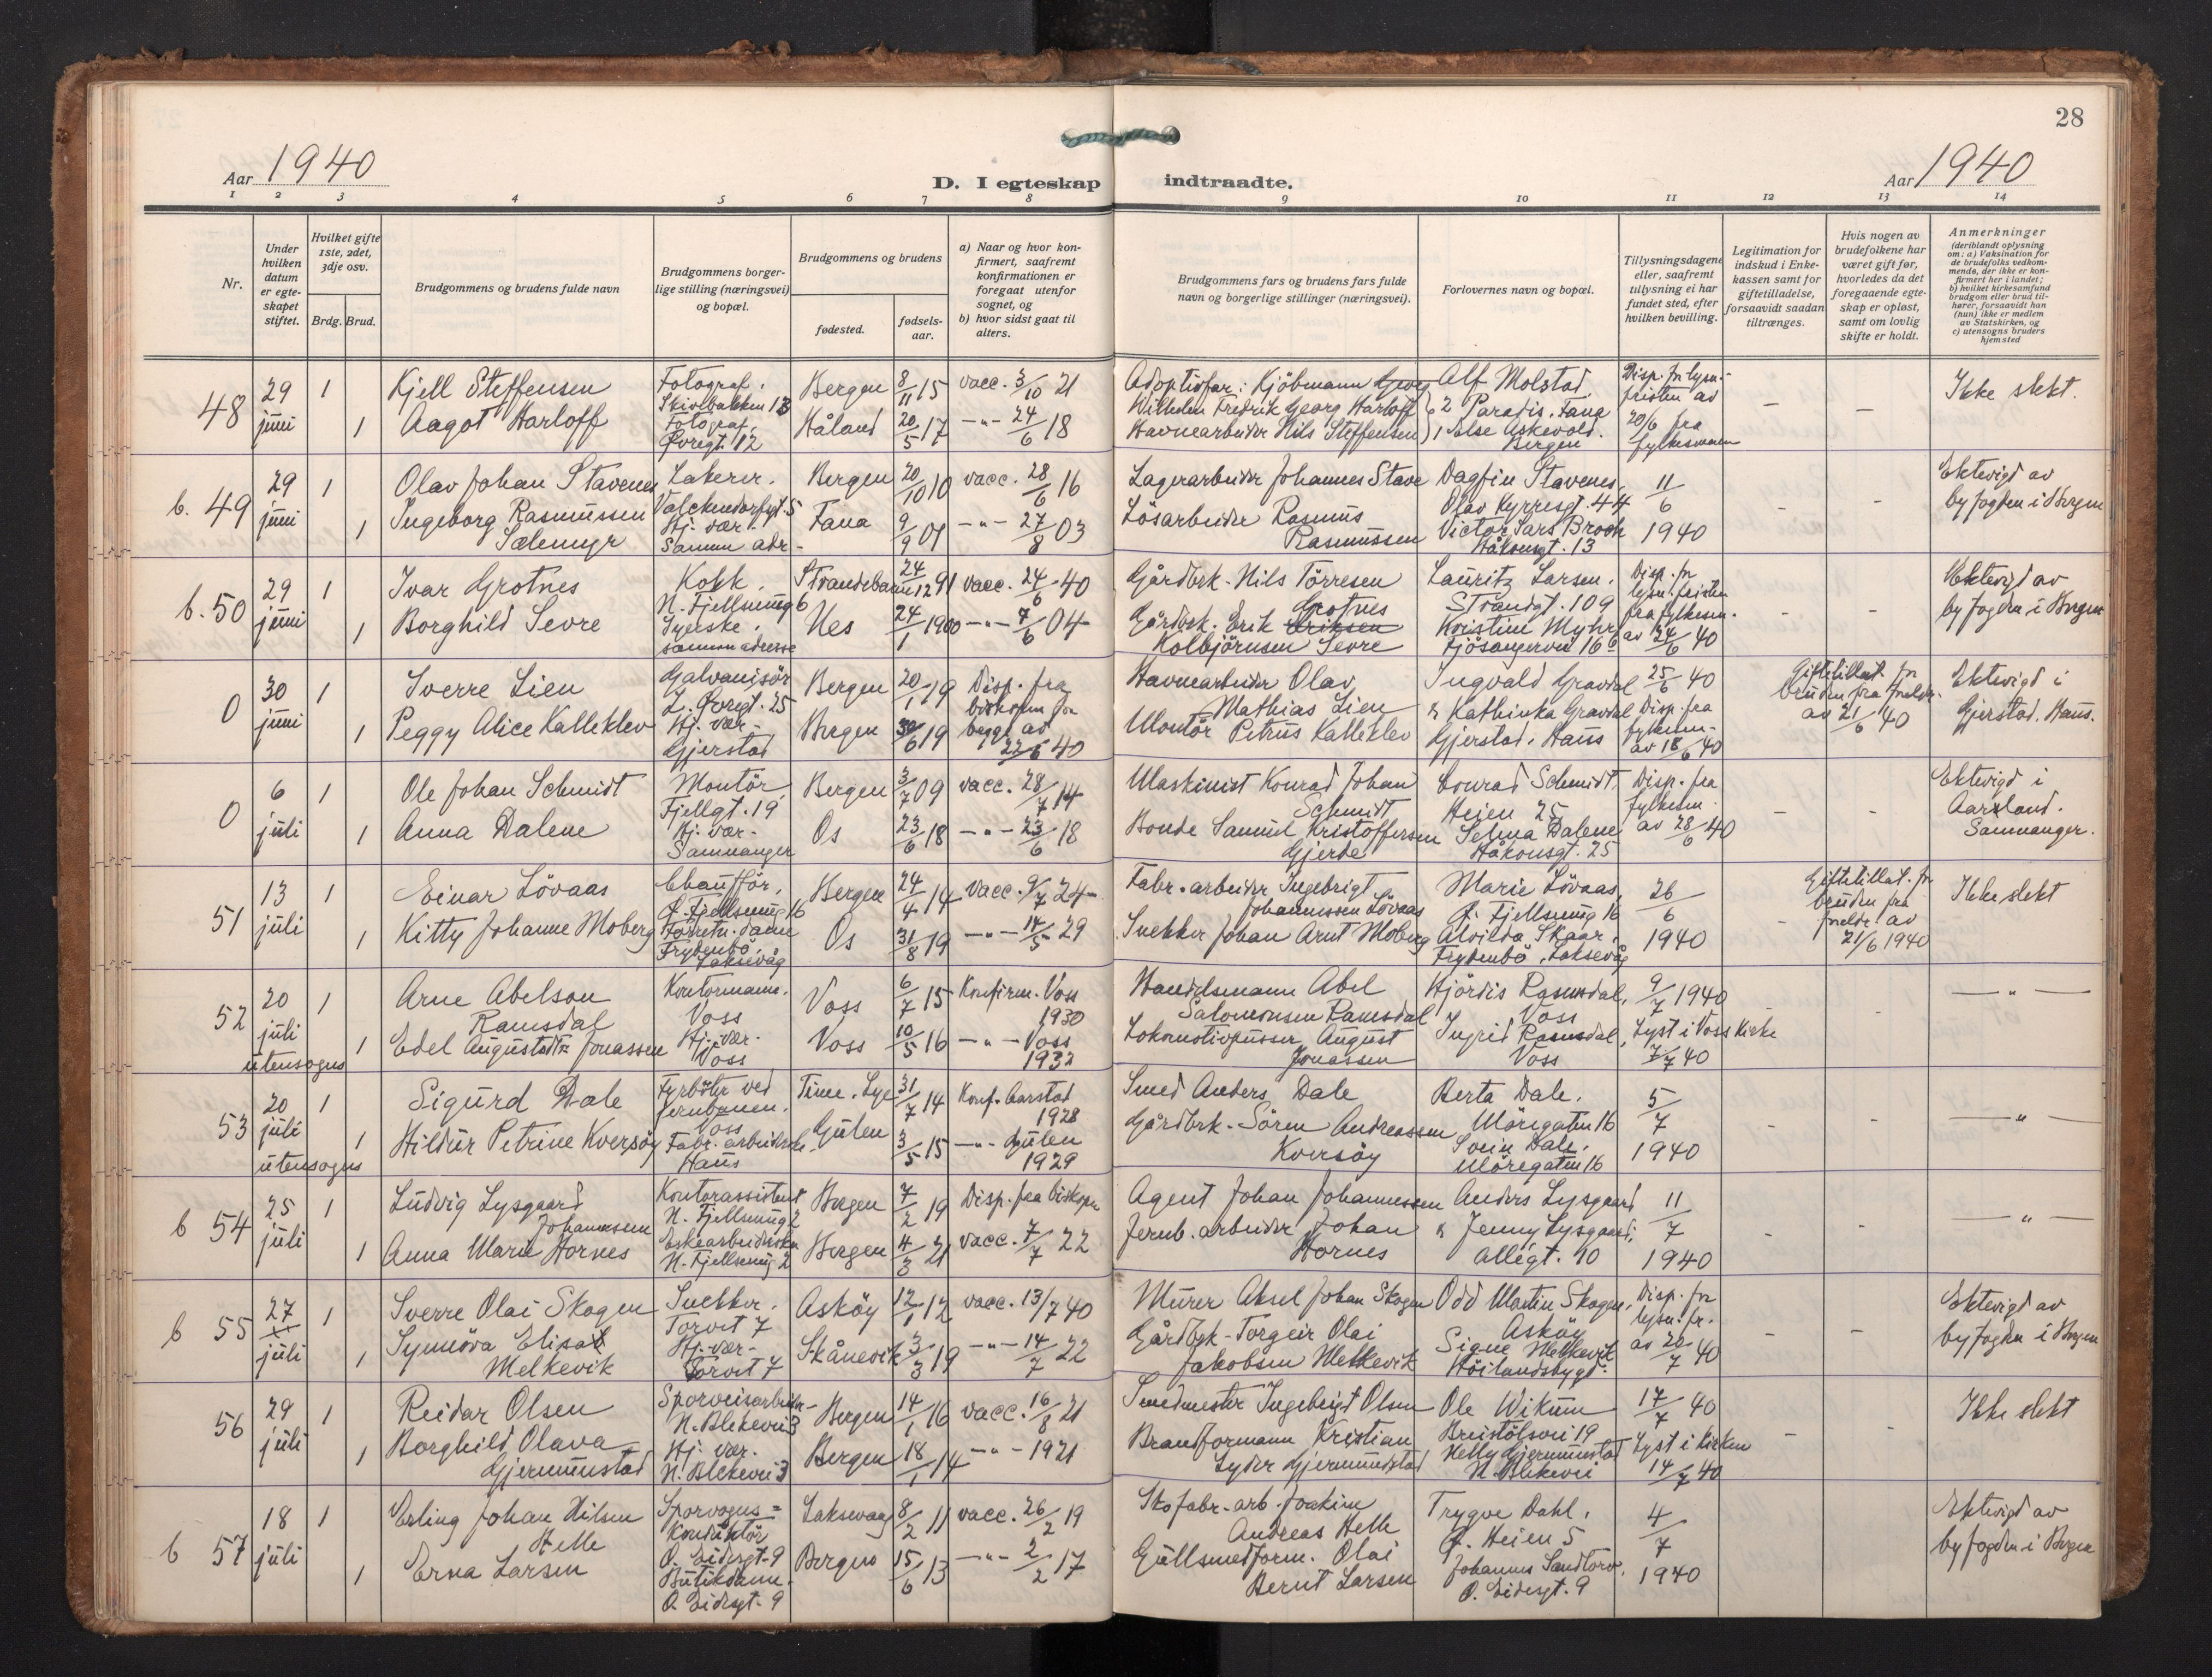 28
Aar 1940
D. I egteskap indtraadte.
Aar 1940
1 2 3 4 5 6 7 8 9 10 11 12 13 14
Nr.
Under hvilken datum er egteskapet stiftet.
Hvilket gifte 1ste, 2det, 3dje osv.
Brdg. Brud.
Brudgommens og brudens fulde navn
Brudgommens borgerlige stilling (næringsvei) og bopæl.
Brudgommens og brudens
fødested.
fødselsaar.
a) Naar og hvor konfirmert, saafremt konfirmationen er foregaat utenfor sognet, og
b) hvor sidst gaat til alters.
Brudgommens fars og brudens fars fulde navn og borgerlige stillinger (næringsvei).
Forlovernes navn og bopæl.
Tillysningsdagene eller, saafremt tillysning ei har fundet sted, efter hvilken bevilling.
Legitimation for indskud i Enkekassen samt for giftetilladelse, forsaavidt saadan tiltrænges.
Hvis nogen av brudefolkene har været gift før, hvorledes da det foregaaende egteskap er opløst, samt om lovlig skifte er holdt.
Anmerkninger
(deriblandt oplysning om: a) Vaksination for de brudefolks vedkommende, der ikke er konfirmert her i landet;
b) hvilket kirkesamfund brudgom eller brud tilhører, forsaavidt han (hun) ikke er medlem av Statskirken, og
c) utensogns bruders hjemsted
48 29 juni 1 Kjell Steffensen Fotograf. Bergen 8/11 15 vacc. 3/10 21 Adoptivfar: Kjöbmann Georg Wilhelm Fredrik Georg Harloff Alf Molstad Paradis. Fana Disp. fr lysn.fristen av 20/6 fra fylkesmann - - Ikke slekt.
1 Aagot Harloff Fotograf, Øvregt. 12 Håland 20/5 17 -"- 24/6 18 Havnearbeider Nils Steffensen Else Askevold. Bergen
b. 49 29 juni 1 Olav Johan Stavenes Lakerer. Valckendorfsgt. 5 Bergen 20/10 10 vacc. 28/6 16 Lagerarbeider Johannes Stave Dagfin Stavenes, Olav Kyrresgt. 44 11/6 1940 - - Ektevigd av byfogden i Bergen
1 Ingeborg Rasmussen Sælemyr Hj. vær. Samme adr - Fana 9/9 01 -"- 27/8 03 Lösarbeider Rasmus Rasmussen Victor Lars Broch Håkonsgt. 13
b. 50 29 juni 1 Ivar Grotnes Kokk. N. Fjellsmug 6 Strandebarm 24/12 91 vacc. 24/6 40 Gårdbrk. Nils Törresen Grotnes Lauritz Larsen. Strandgt. 109 Disp. fr lysn. fristen fra fylkesm. av 24/6 40 - - Ektevigd av byfogden i Bergen
1 Borghild Sevre Syerske. samme adresse Nes 24/1 1900 -"- 7/6 04 Gårdbrk. Erik Eriksen Kolbjörnsen Sevre Kristine Myhr Fjösangervei 16
0 30 juni 1 Sverre Lien Galvanisör L. Øvregt. 25 Bergen 20/1 19 Disp. fra biskopen for begge av 22/6 40 Havnearbeider Olav Mathias Lien Ingvald Gravdal & Kathinka Gravdal Gjerstad. Haus 25/6 40 Disp. fra fylkesm. av 18/6 40 Giftetillat. fr bruden fra foreldr. av 21/6 40 Ektevigd i Gjerstad. Haus.
1 Peggy Alice Kalleklev Hj. vær - Gjerstad Bergen 30/6 19 Montör Petrus Kalleklev
0 6 juli 1 Ole Johan Schmidt Montör, Fjellgt. 19 Bergen 3/7 09 vacc. 28/7 14 Maskinist Konrad Johan Schmidt Conrad Schmidt. Heien 25 Disp. fra fylkesm. av 28/6 40 - - Ektevigd i Aarland. Samnanger.
1 Anna Dalene Hj. vær - Samnanger Os 23/6 18 -"- 23/6 18 Bonde Samuel Kristoffersen Gjerde Selma Dalene Håkonsgt. 25
51 13 juli 1 Einar Lövaas Chauffør, Ø. Fjellsmug 16 Bergen 24/4 14 vacc. 9/7 24 Fabr. arbeider Ingebrigt Johannessen Lövaas Marie Lövaas, Ø. Fjellsmug 16 26/6 1940 - Giftetillat. fr bruden fra foreldr. av 21/6 1940 Ikke slekt
1 Kitty Johanne Moberg Forretn. dame Frydenbö, Laksevåg Os 31/8 19 -"- 14/5 29 Snekker Johan Arnt Moberg Alvilda Skaar. Frydenbö, Laksevåg
52 20 juli 1 Arne Abelson Ramsdal Kontormann. Voss Voss 6/7 15 Konfirm. Voss 1930 Handelsmann Abel Salomonsen Ramsdal Hjördis Ramsdal, Voss 9/7 1940 Lyst i Voss Kirke 7/7 40 - - -"-
utensogns 1 Edel Augustdtr Jonassen Hj. vær. Voss Voss 10/5 16 -"- Voss 1932 Lokomotivpusser August Jonassen Ingrid Ramsdal, Voss
53 20 juli 1 Sigurd Dale Fyrböter ved jernbanen. Voss Time. Lye 31/7 14 Konf. Harstad 1928 Smed Anders Dale Berta Dale. Möregaten 16 5/7 1940 - - -"-
utensogns 1 Hildur Petrine Kversöy Fabr. arbeiderske. Haus Gulen 3/5 15 -"- Gulen 1929 Gårdbrk. Sören Andreassen Kversöy Svein Dale. Möregaten 16
b 54 25 juli 1 Ludvig Lysgaard Johannessen Kontorassistent N. Fjellsmug 2 Bergen 7/2 19 Disp. fra biskopen Agent Johan Johannessen Anders Lysgaard & Jenny Lysgaard, Allégt. 10 11/7 1940 - - -"-
1 Anna Marie Hornes Eskearbeiderske N. Fjellsmug 2 Bergen 4/3 21 vacc. 7/7 22 Jernb. arbeider Johan Hornes
b 55 27 juli 1 Sverre Olai Skogen Snekker. Torvet 7 Asköy 12/1 12 vacc. 13/7 40 Murer Aksel Johan Skogen Odd Martin Skogen, Asköy Disp. fr lysn. fr. av 20/7 40 - - Ektevigd av byfogden i Bergen
1 Synnöva Elisa Melkevik Hj. vær - Torvet 7 Skånevik 3/3 19 -"- 14/7 22 Gårdbrk - Torgeir Olai Jakobsen Melkevik Signe Melkevik Höilandsbygd.
56 29 juli 1 Reidar Olsen Sporveisarbeider N. Blekevei 3 Bergen 14/1 16 vacc. 16/8 21 Smedmester Ingebrigt Olsen Ole Wikum Breistölsvei 19 17/7 40 Lyst i kirken 14/7 40 - - Ikke slekt
1 Borghild Olava Gjermundstad Hj. vær. N. Blekevei 3 Bergen 18/1 14 -"- 1921 Brandformann Kristian Lyder Gjermundstad Nelly Gjermundstad N. Blekevei
b 57 18 juli 1 Erling Johan Nilsen Helle Sporvogns= konduktör Ø. Eidesgt. 9 Laksevaag 8/2 11 vacc. 26/2 19 Skofabr. arb. Joakim Andreas Helle Trygve Dahl. Ø. Heien 5 4/7 1940 Ektevigd av byfogden i Bergen
1 Erna Larsen Butikdame. Ø. Eidesgt. 9 Bergen 15/6 13 -"- 2/2 17 Gullsmedform. Olai Bernt Larsen Johannes Sandtorv. Ø. Eidesgt. 9